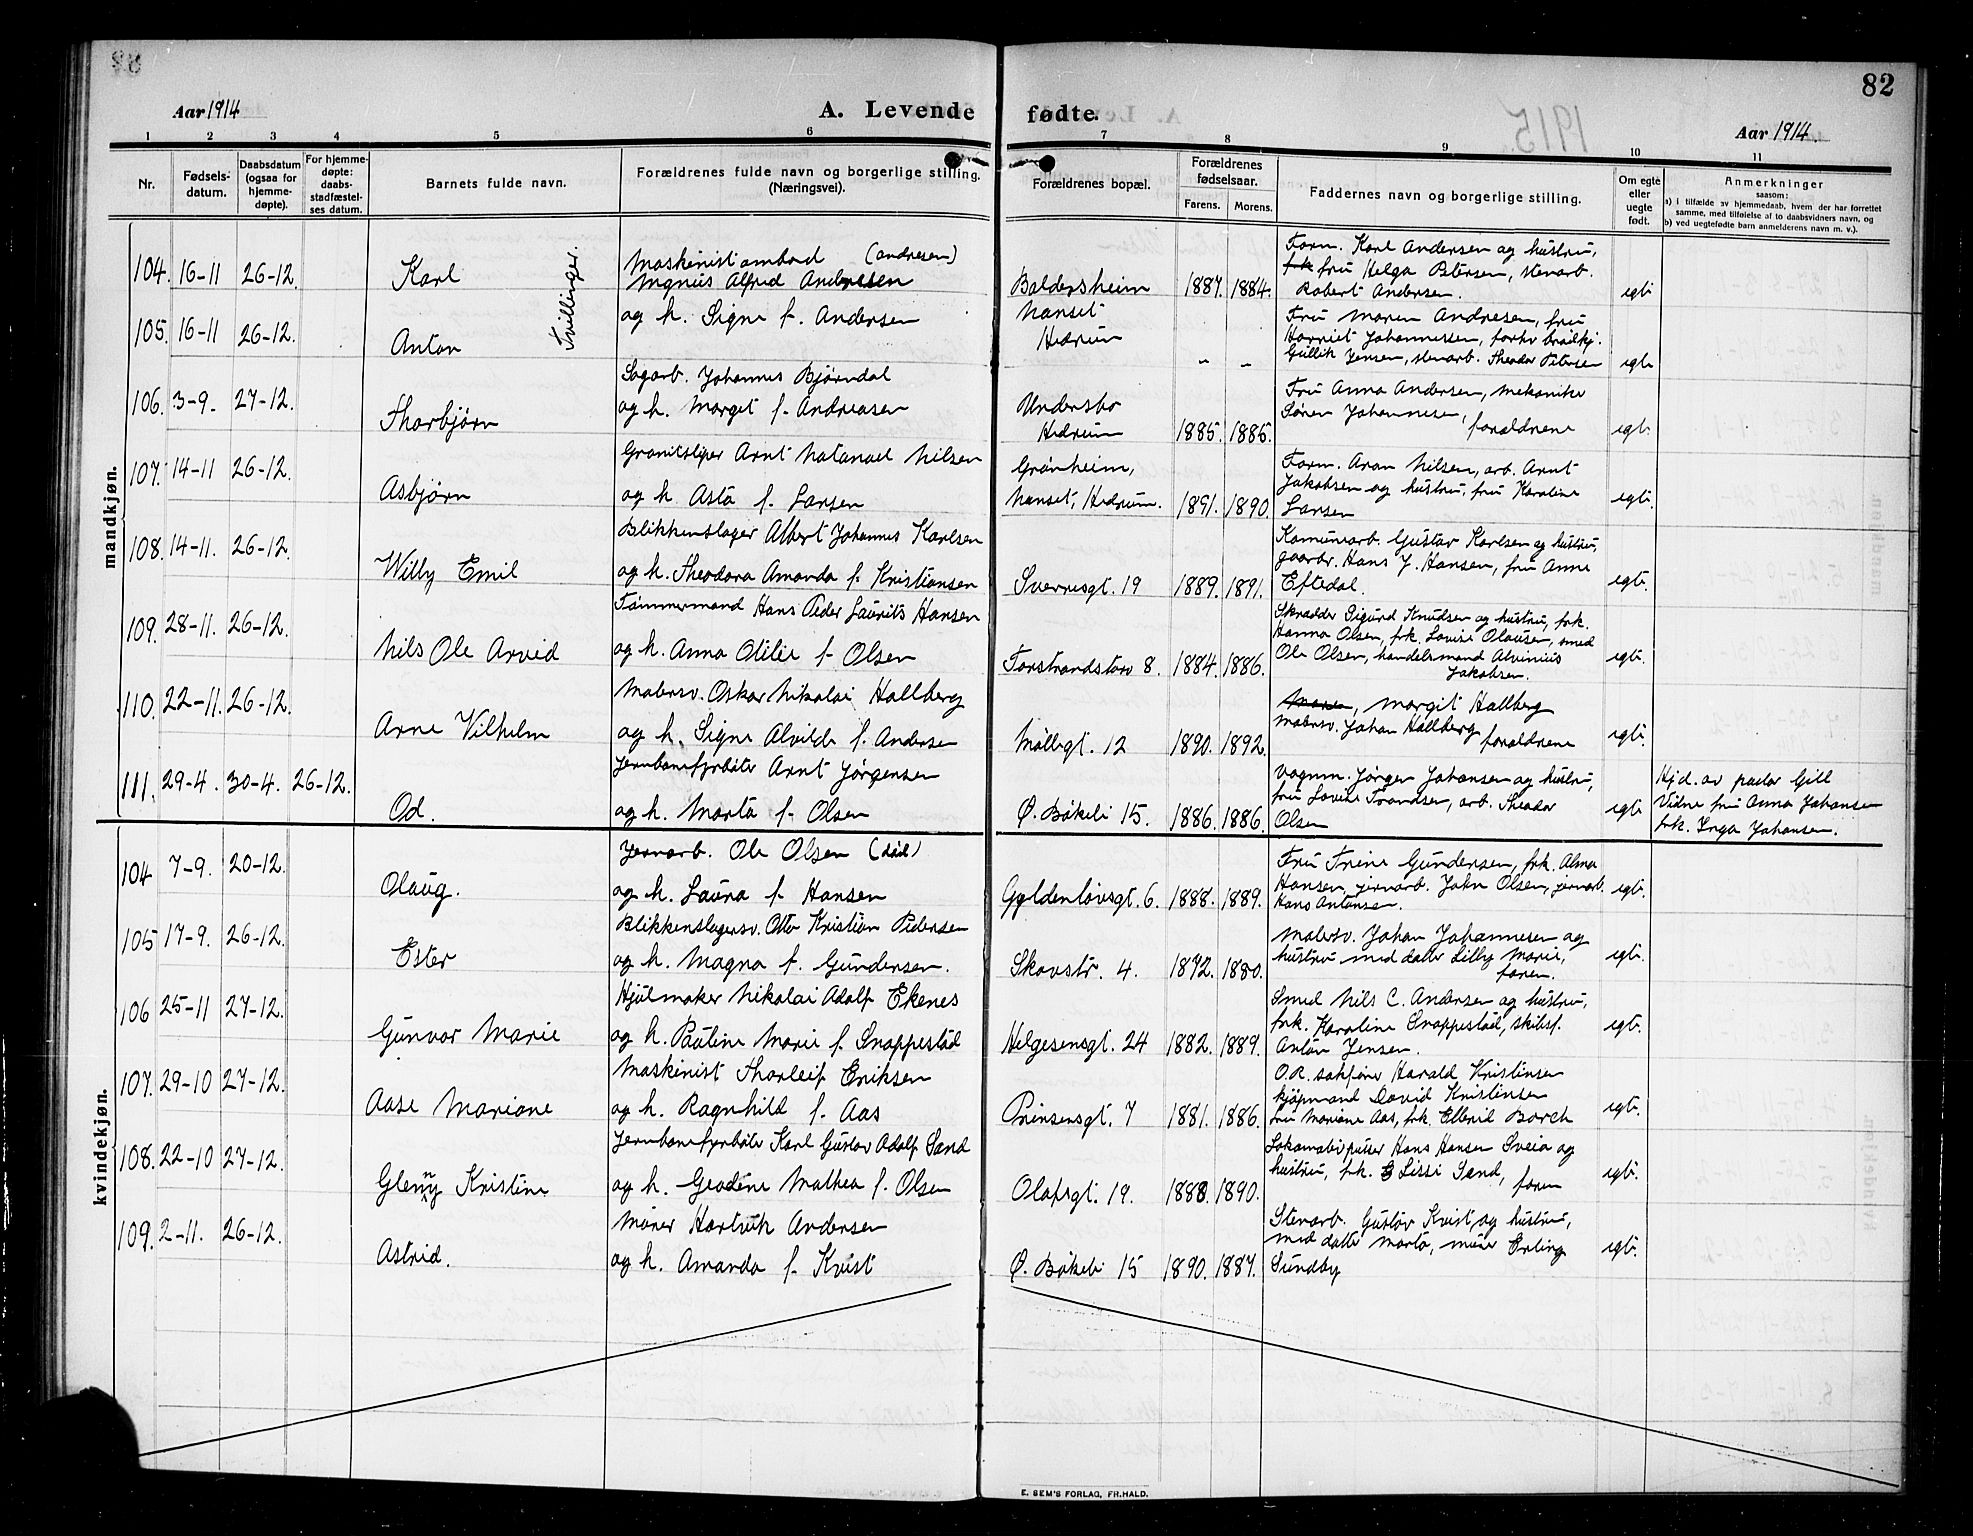 82
Aar 1914
A. Levende fødte.
Aar 1914
1 2 3 4 5 6 7 8 9 10 11
Nr.
Fødsels-
datum.
Daabsdatum
(ogsaa for
hjemme-
døpte).
For hjemme-
døpte:
daabs-
stadfæstel-
ses datum.
Barnets fulde navn.
Forældrenes fulde navn og borgerlige stilling.
(Næringsvei).
Forældrenes bopæl.
Forældrenes
fødselsaar.
Farens. Morens.
Faddernes navn og borgerlige stilling.
Om egte
eller
uegte
født.
Anmerkninger
saasom:
a) i tilfælde av hjemmedaab, hvem der har forrettet
samme, med tilføielse af to daabsvidners navn, og
b) ved uegtefødte barn anmelderens navn m. v.).
mandkjøn.
104. 16-11 26-12. Karl
Tvillinger.
Maskinist ombord (Andresen)
Magnus Alfred Andresen
og h. Signe f. Andersen
Baldersheim
Nanset
Hedrum
1887. 1884.
Form. Karl Andersen og hustru,
fru Helga Petersen, stenarb.
Robert Andersen.
egte
105. 16-11 26-12. Anton
" "
Fru Maren Andresen, fru
Harriet Johannessen, forhv brødkj.
Gullik Jensen, stenarb. Theodor Petersen
egte
106. 3-9. 27-12. Thorbjørn
Sagarb. Johannes Bjørndal
og h. Margit f. Andreasen
Undersbo
Hedrum
1885. 1885.
Fru Anna Andersen, mekanike
Søren Johannesen,
forældrene
egte.
107. 14-11 26-12. Asbjørn
Granitsliper Arnt Natanael Nilsen
og h. Asta f. Larsen
Grønheim,
Nanset, Hedrum.
1891. 1890
Form. Aron Nilsen, arb. Arnt
Jakobsen og hustru, fru Karoline
Larsen
egte.
108. 14-11. 26-12. Willy Emil
Blikkenslager Albert Johannes Karlsen
og h. Theodora Amanda f. Kristiansen
Sverresgt. 19
1889. 1891.
Komunearb. Gustav Karlsen og hustru,
gaarbr. Hans J. Hansen, fru Anne
Eftedal.
egte.
109. 28-11. 26-12. Nils Ole Arvid
Tømmermand Hans Peder Laurits Hansen
og h. Anna Otilie f. Olsen
Torstrandstorv 8.
1884. 1886.
Skrædder Sigurd Knudsen og hustru, frk.
Hanna Olsen, frk. Lovise Olausen, smed
Ole Olsen, handelsmand Alvinius
Jakobsen.
egte.
110. 22-11. 26-12. Arne Vilhelm
Malersv. Oskar Nikolai Hallberg
og h. Signe Alvilde f. Andersen
Møllegt. 12
1890. 1892.
Margit Hallberg
Malersv. Johan Hallberg
forældrene
egte.
111. 29-4. 30-4. 26-12. Od.
Jernbanefyrbøter Arnt Jørgensen
og h. Marta f. Olsen
Ø. Bøkeli 15.
1886. 1886.
Vognm. Jørgen Johansen og hustru,
fru Lovise Trandsen, arb. Theodor
Olsen
egte
Hjd. av pastor Gill
Vidne fru Anna Johansen
frk. Inga Johansen.
kvindekjøn.
104 7-9. 20-12. Olaug.
Jernarb. Ole Olsen (død)
og h. Laura f. Hansen
Gyldenløvsgt. 6.
1888. 1889.
Fru Trine Gundersen, frk. Alma
Hansen, jernarb. John Olsen, jernarb.
Hans Antonsen.
egte.
105 17-9. 26-12. Ester
Blikkenslagersv. Otto Kristian Pedersen
og h. Magna f. Gundersen.
Skovstr. 4.
1872. 1880.
Malersv. Johan Johannesen og
hustru med datter Lilly Marie,
faren.
egte.
106 25-11 27-12. Gunvor Marie
Hjulmaker Nikolai Adolf Ekenes
og h. Pauline Marie f. Snappestad
Helgesensgt. 24
1882. 1889.
Smed Nils C. Andersen og hustru,
frk. Karoline Snappestad, skibsf.
Anton Jensen.
egte.
107. 29-10 27-12. Aase Mariane
Maskinist Thorleif Eriksen
og h. Ragnhild f. Aas
Prinsensgt. 7
1881. 1886.
O.R. sakfører Harald Kristensen
kjøpmand David Kristensen
fru Mariane Aas, frk. Elberid Borch
egte.
108. 22-10 27-12. Glenny Kristine
Jernbanefyrbøter Karl Gustav Adolf Sand
og h. Geodine Mathea f. Olsen
Olafsgt. 19.
1888. 1890.
Lokomotivpusser Hans Hansen Sveia og
hustru, frk. Lissi Sand, faren
egte.
109. 2-11. 26-12. Astrid.
Murer Hartvik Andersen
og h. Amanda f. Kvist
Ø. Bøkeli 15
1890. 1887.
Stenarb. Gustav Kvist og hustru,
med datter Marta, murer Erling
Sundby
egte.
E. SEM'S FORLAG, FR.HALD.